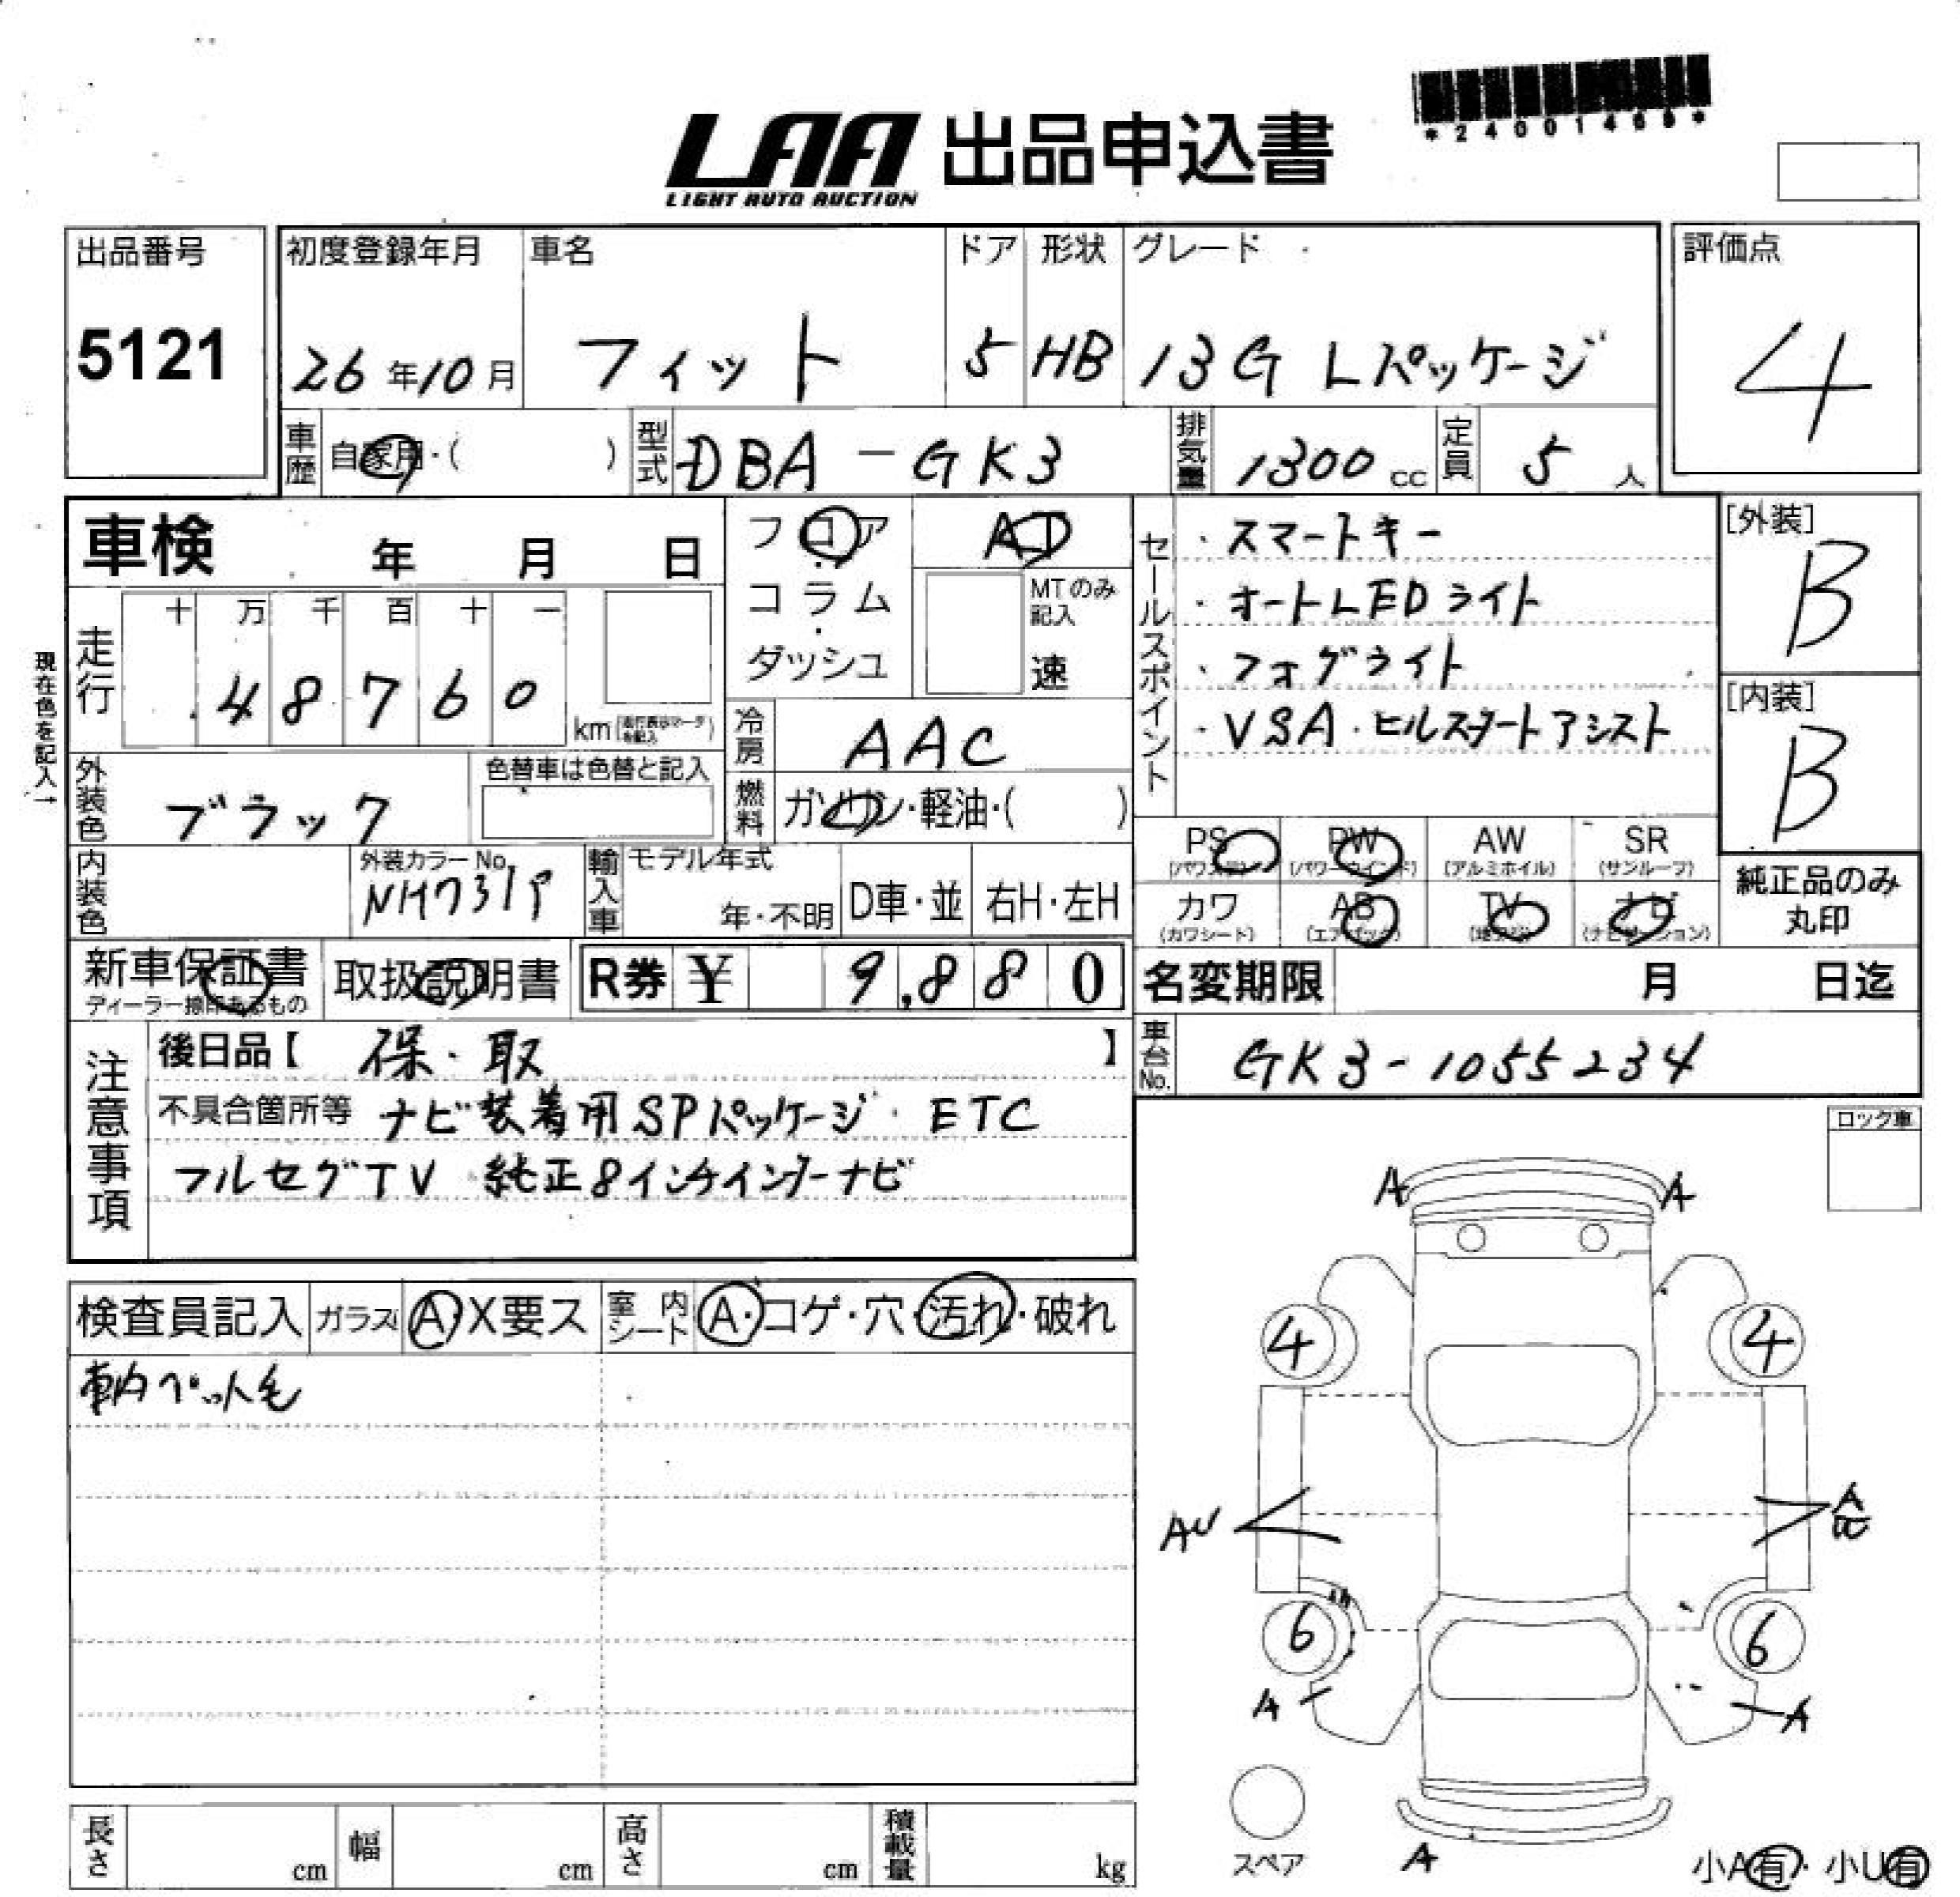 *24001469*
LAA 出品申込書
LIGHT AUTO AUCTION
出品番号
5121
初度登録年月
26年10月
車名
フィット
ドア
5
形状
HB
グレード
13G Lパッケージ
評価点
4
車歴 自家用・( )
型式 DBA-GK3
排気量 1300cc
定員 5人
車検 年 月 日
フロア
コラム
・
ダッシュ
AT
MTのみ
記入
速
セールスポイント
・スマートキー
・オートLEDライト
・フォグライト
・VSA・ヒルスタートアシスト
[外装]
B
[内装]
B
現在色を記入→
走行
十 万 千 百 十 一
48760
km
冷房 AAC
燃料 ガソリン・軽油・( )
外装色 ブラック
色替車は色替と記入
内装色
外装カラーNo.
NH731P
輸入車
モデル年式
年・不明
D車・並
右H・左H
PS
(パワステ)
PW
(パワーウインド)
AW
(アルミホイル)
SR
(サンルーフ)
カワ
(カワシート)
AB
(エアバック)
TV
ナビ
(ナビゲーション)
純正品のみ
丸印
新車保証書
ディーラー捺印あるもの
取扱説明書
R券 ¥ 9,880
名変期限 月 日迄
車台No. GK3-1055234
注意事項
後日品【 保・取 】
不具合箇所等 ナビ装着用SPパッケージ・ETC
フルセグTV 純正8インチインターナビ
ロック車
検査員記入
ガラス A・X要ス
室内シート A・コゲ・穴・汚れ・破れ
車内ペット毛
A A
4 4
AU
A
6 6
A A
スペア
A
小A有・小U有
長さ cm
幅 cm
高さ cm
積載量 kg